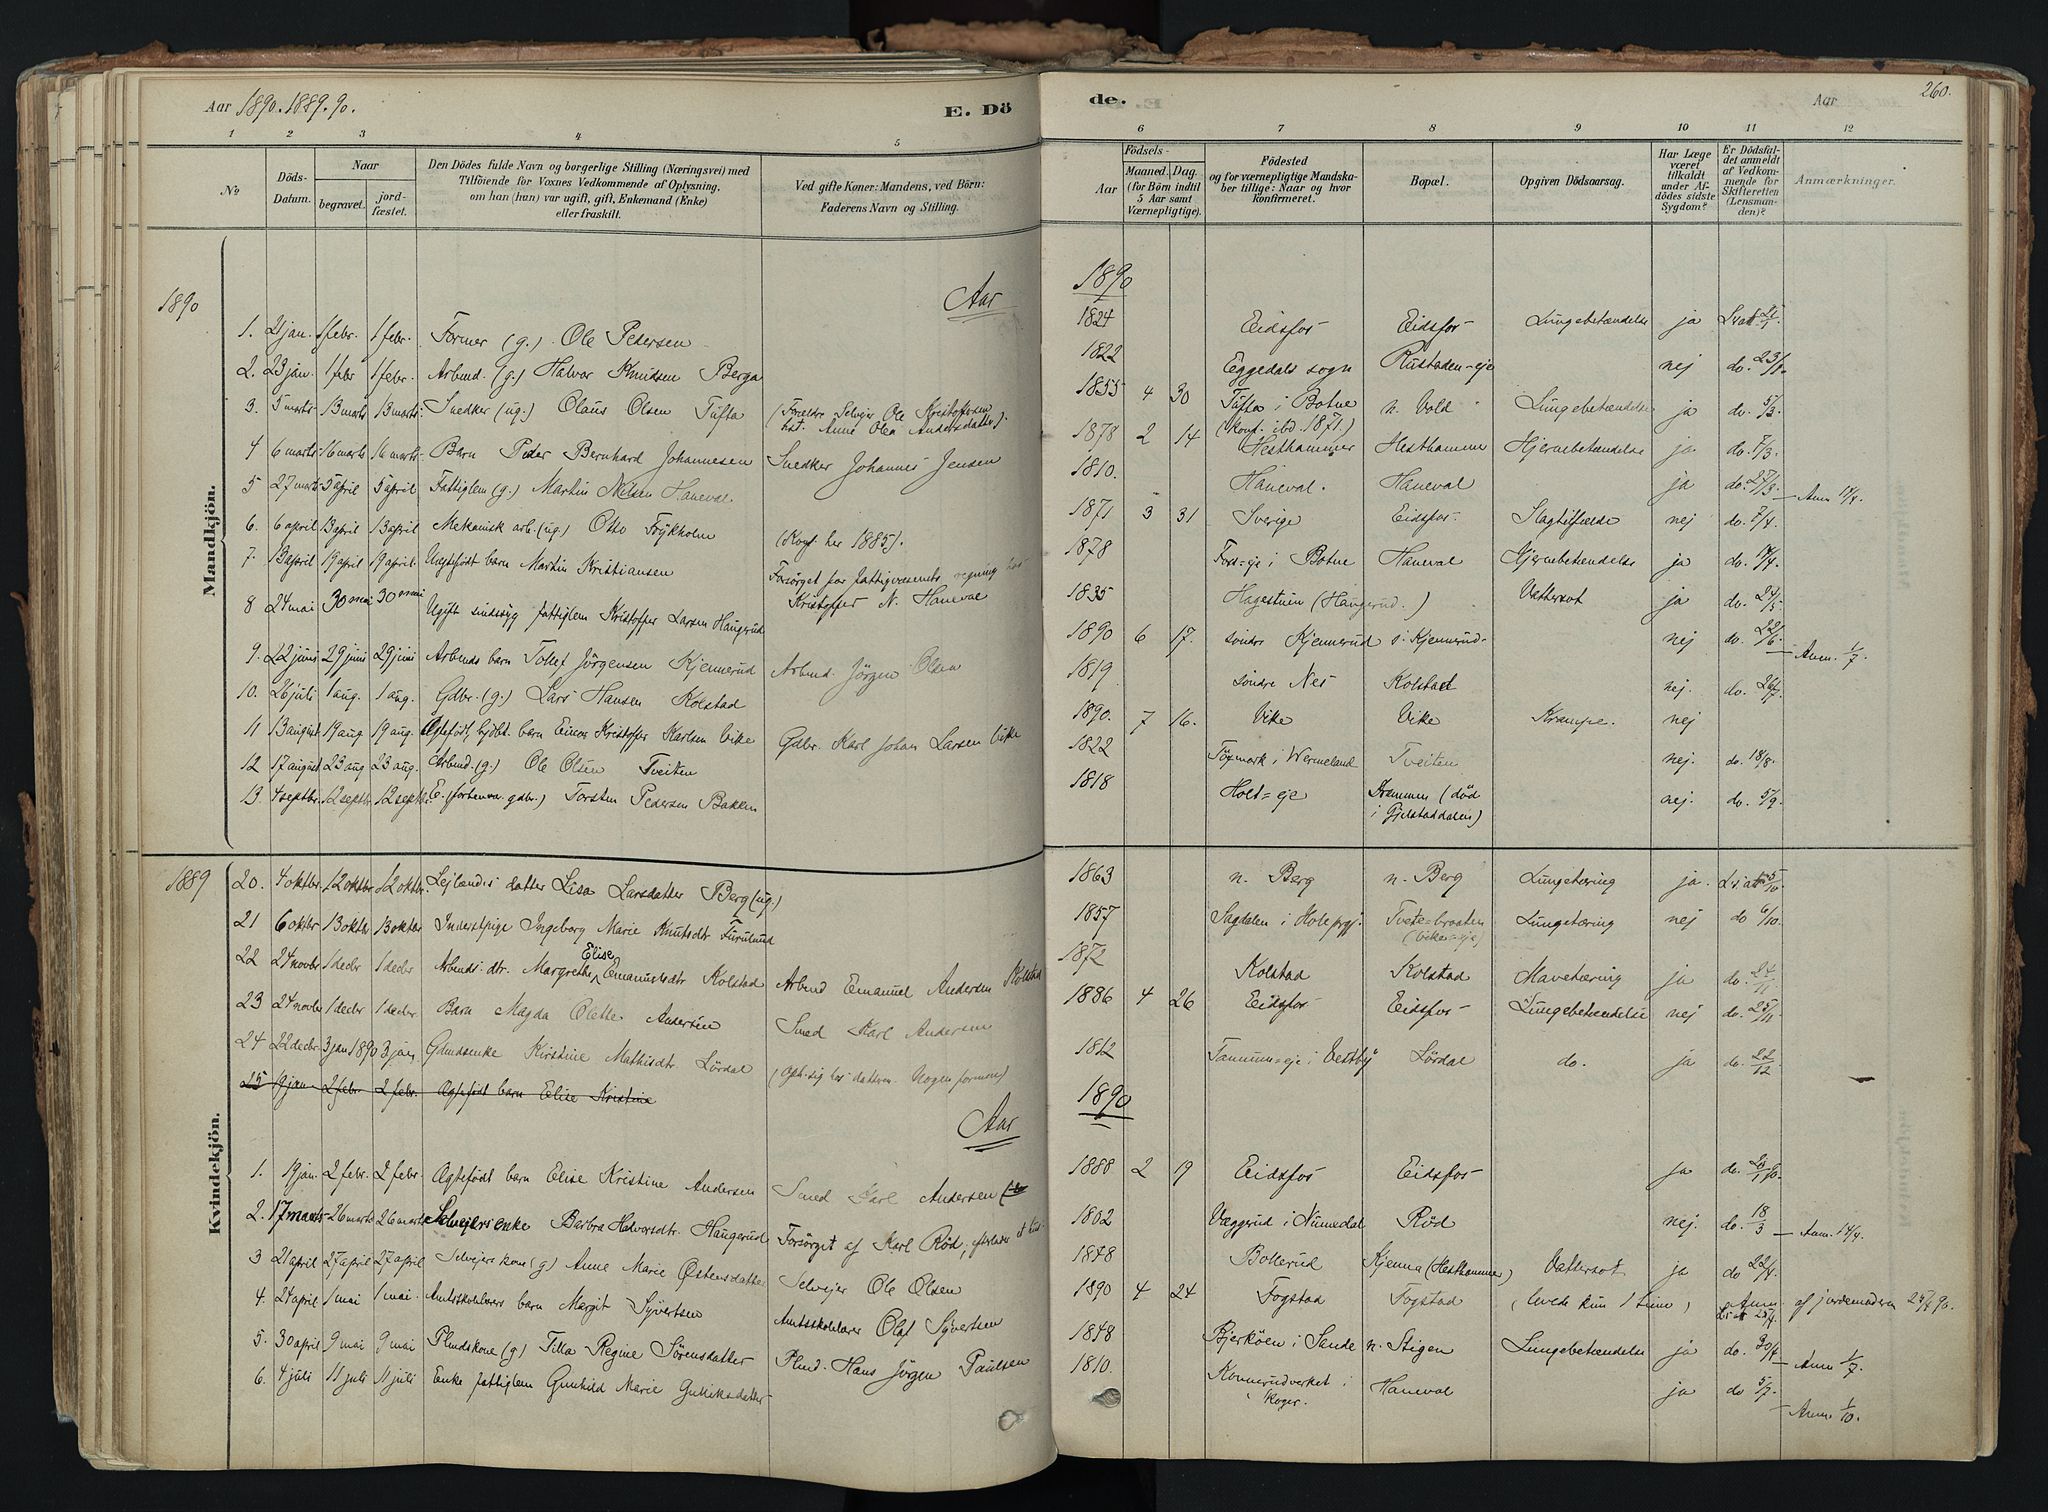 Aar 1890. 1889. 90.
E. Dö
de.
Aar
260.
1 2 3 4 5 6 7 8 9 10 11 12
No
Döds-
Datum.
Naar
begravet.
jord-
fæstet.
Den Dödes fulde Navn og borgerlige Stilling (Næringsvei) med
Tilföiende for Voxnes Vedkommende af Oplysning,
om han (hun) var ugift, gift, Enkemand (Enke)
eller fraskilt.
Ved gifte Koner: Mandens, ved Börn:
Faderens Navn og Stilling.
Födsels-
Aar
Maaned. Dag.
(for Börn indtil
5 Aar samt
Værnepligtige).
Födested
og for værnepligtige Mandska-
ber tillige: Naar og hvor
konfirmeret.
Bopæl.
Opgiven Dödsaarsag.
Har Læge
været
tilkaldt
under Af-
dödes sidste
Sygdom?
Er Dödsfal-
det anmeldt
af Vedkom-
mende for
Skifteretten
(Lensman-
den)?
Anmærkninger.
Mandkjön.
1890
Aar 1890
1. 21 jan. 1 febr. 1 febr. Former (g.) Ole Pedersen 1824 Eidsfos Eidsfos Lungebetændelse ja
2. 23 jan. 1 febr 1 febr. Arbmd. (g.) Halvor Knudsen Berga 1822 Eggedals sogn Rustaden=eje nej do. 23/1.
3. 5 marts 13 marts 13 marts. Snedker (ug.) Olaus Olsen Tufta (Forældre Selvejer Ole Kristoffersen 1855 4 30 Tufta i Botne n. Vold Lungebetændelse ja do. 5/3.
hst. Anne Olea Andersdatter). (konf. ibd. 1871.)
4 6 marts 16 marts 16 marts. Barn Peder Bernhard Johannesen Snedker Johannes Jensen 1878 2 14 Hesthammer Hesthammer Hjernebetændelse ja do. 7/3.
5 27 marts 5 april 5 april Fattiglem (g.) Martin Nilsen Haneval 1810. Haneval. Haneval ja do. 27/3. Anm. 18/4.
6. 6 april 13 april 13 april Mekanisk arb. (ug.) Otto Frykholm (Konf. her 1885). 1871 3 31 Sverige Eidsfos Slagtilfælde nej do. 7/4.
7. 13 april 19 april 19 april. Uægtefødt barn Martin Kristiansen Forsørget for fattigvæsenets regning hos 1878 Foss=eje i Botne Haneval Hjernebetændelse ja do. 14/4.
Kristoffer N. Haneval
8 24 mai 30 mai 30 mai Ugift sindssyg fattiglem Kristoffer Larsen Haugerud 1835 Hagestuen (Haugerud.) Vattersot ja do. 24/5.
9. 22 juni 29 juni 29 juni Arbmds barn Tollef Jörgensen Kjennerud Arbmd. Jörgen Olsen 1890 6 17. søndre Kjennerud s. Kjennerud nej do. 22/6. Anm. 1/7.
10. 26 juli 1 aug. 1 aug. Gdbr. (g.) Lars Hansen Kolstad 1819 søndre Nes Kolstad nej. do. 26/7.
11 13 august 19 aug 19 aug. Ægtefødt, hjdbt. barn Einar Kristoffer Karlsen Vike Gdbr. Karl Johan Larsen Vike 1890. 7 16. Vike Vike Krampe. nej
12 17 august 23 aug 23 aug. Arbmd. (g.) Ole Olsen Tveiten 1822 Töxmark i Wermeland Tveiten nej. do. 18/8.
13. 4 septbr. 12 septbr 12 septbr. E. (forhenv. gdbr.) Torsten Pedersen Bakken 1818 Holt=eje Drammen (död nej. do. 5/9.
i Gjelstaddalen)
Kvindekjön.
1889
20. 4 oktbr. 12 oktbr 12 oktbr. Lejlændis datter Lisa Larsdatter Berg (ug.) 1863 n. Berg n. Berg Lungetæring ja. 5/10.
21 6 oktbr 13 oktbr 13 oktbr Inderstpige Ingeborg Marie Knutsdtr Furulund 1857 Sagdalen i Hole prgj. Tvete-braaten Lungetæring nej do 6/10.
(Vike=eje)
22 24 novbr 1 decbr 1 decbr. Arbmds dtr. Margrethe Elise Emanuelsdtr Kolstad Arbmd Emanuel Andersen Kolstad 1872 Kolstad Kolstad Mavetæring ja do. 24/11.
23 24 novbr 1 decbr 1 decbr. Barn Magda Olette Andersen Smed Karl Andersen 1886 4 26 Eidsfos Eidsfos Lungebetændelse nej do. 25/11.
24 22 decbr. 3 jan 1890 3 jan. Gdmdsenke Kirstine Mathisdtr Lördal 1812 Tannum=eje i Vestby Lördal do. ja do. 22/12
25 19 jan 2 febr 2 febr. Ægtefødt barn Elise Kristine
Aar 1890
1. 19 jan. 2 febr. 2 febr. Ægtefødt barn Elise Kristine Andersen Smed Karl Andersen 1888 2 19 Eidsfos Eidsfos ja do. 20/1 90.
2. 17 marts 26 marts 26 marts Selvejersenke Barbra Halvorsdtr. Haugerud Forsørget af Karl Röd; 1802 Væggerud i Numedal Röd nej. do. 18/3 Anm. 14/4.
3 21 april 27 april 27 april Selvejerskone (g) Anne Marie Østensdatter Selvejer Ole Olsen 1848 Bollerud Kjenna (Hesthammer) Vattersot ja do 22/4.
4. 24 april 1 mai 1 mai. Amtsskolelærers barn Margit Syvertsen Amtsskolelærer Olaf Syvertsen 1890 4 24 Fogstad Fogstad (levede kun 1 time) Anm. af jordemoderen 24/4 90.
5. 30 april 9 mai 9 mai Plmdskone (g) Tilla Regine Sörensdatter Plmd. Hans Jörgen Paulsen 1848 Bjerköen i Sande n. Stigen Lungebetændelse ja do. 30/4 Anm. 1/7.
6. 4 juli 11 juli 11 juli Enke fattiglem Gunhild Marie Gulliksdatter 1810. Konnerudverket i Haneval ja do 5/7. Anm. 1/10.
Skoger.